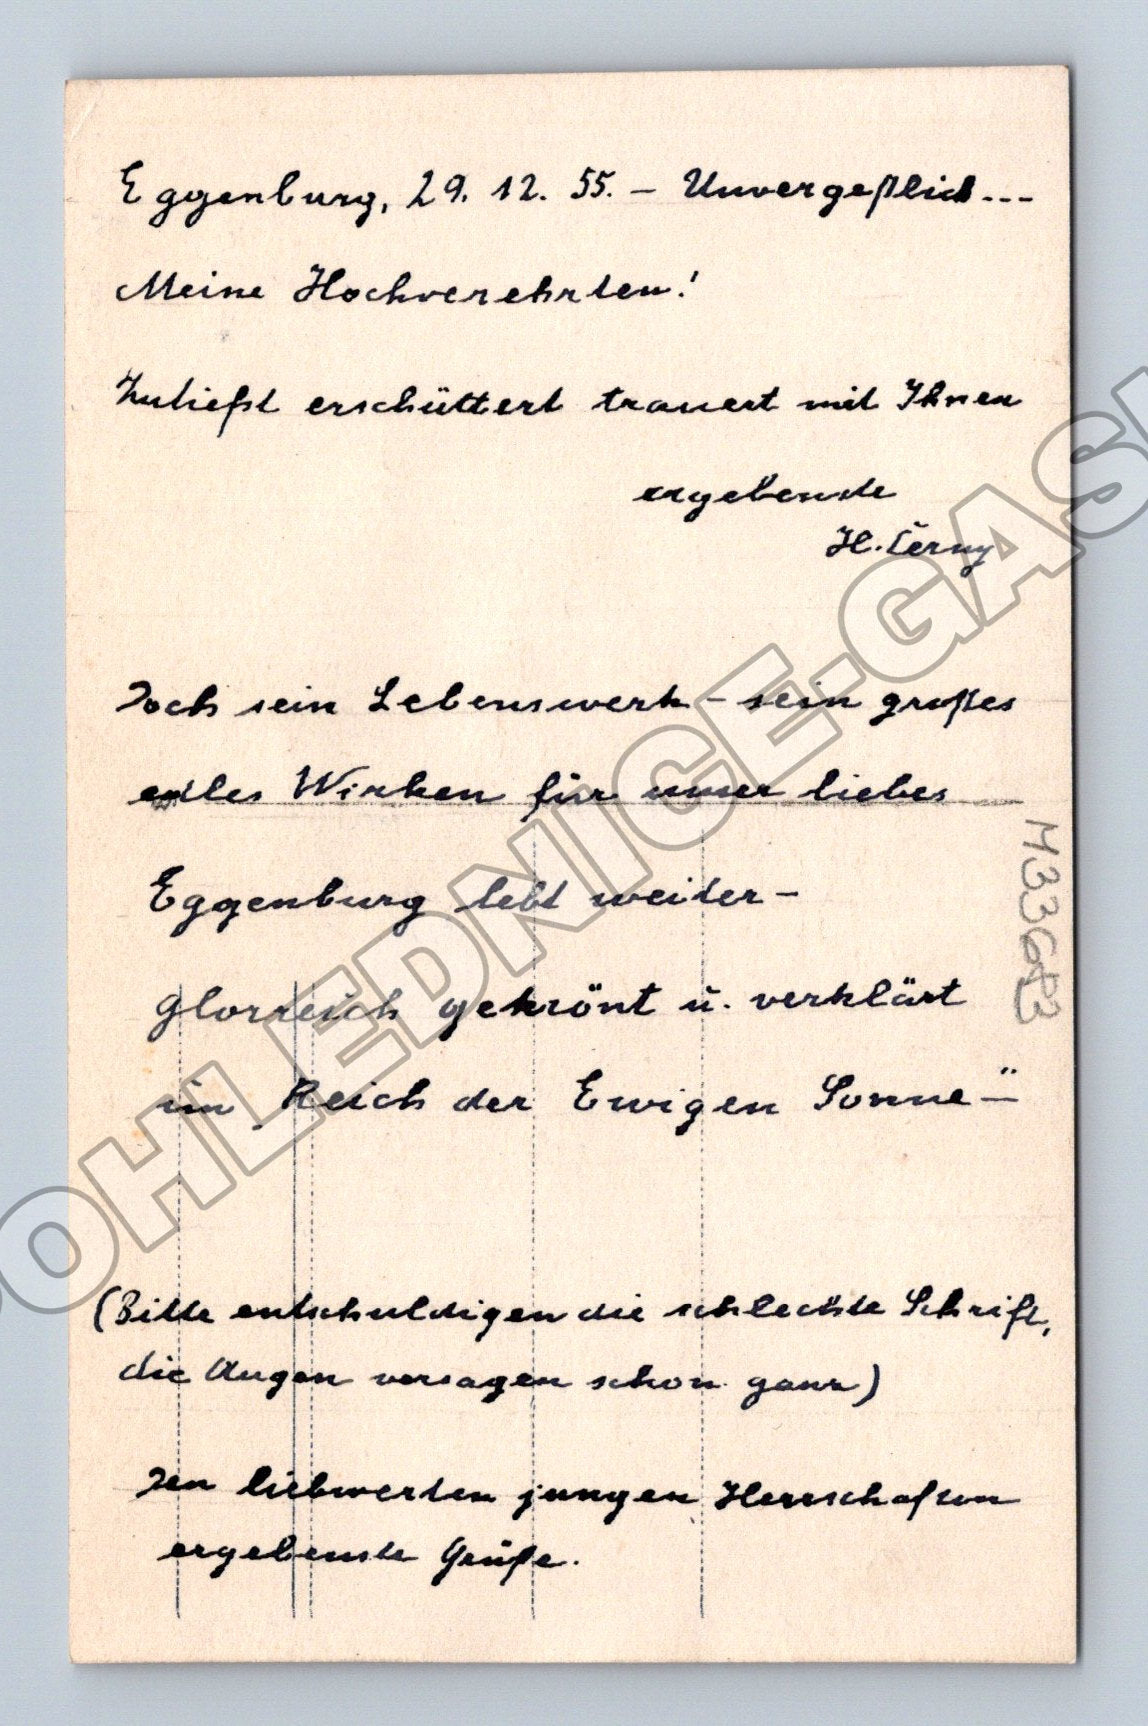 Eggenburg, 29. 12. 55. – Unvergeßlich ---
Meine Hochverehrten!
Zutiefst erschüttert trauert mit Ihnen
ergebenste
H. Černy
Doch sein Lebenswerk – sein großes
edles Wirken für unser liebes
Eggenburg lebt weiter –
glorreich gekrönt u. verklärt
im „Reich der Ewigen Sonne“ –
(Bitte entschuldigen die schlechte Schrift,
die Augen versagen schon ganz)
Den liebwerten jungen Herrschaften
ergebenste Grüße.
OHLEDNICE-GAS